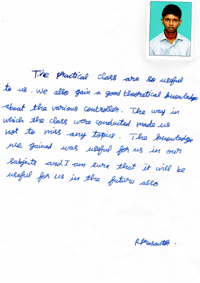 The practical class are so useful
to us. We also gain a good theoretical knowledge
about the various controller. The way in
which the class were conducted made us
not to miss any topics. The knowledge
we gained was useful for us in our
subjects and I am sure that it will be
useful for us in the future also